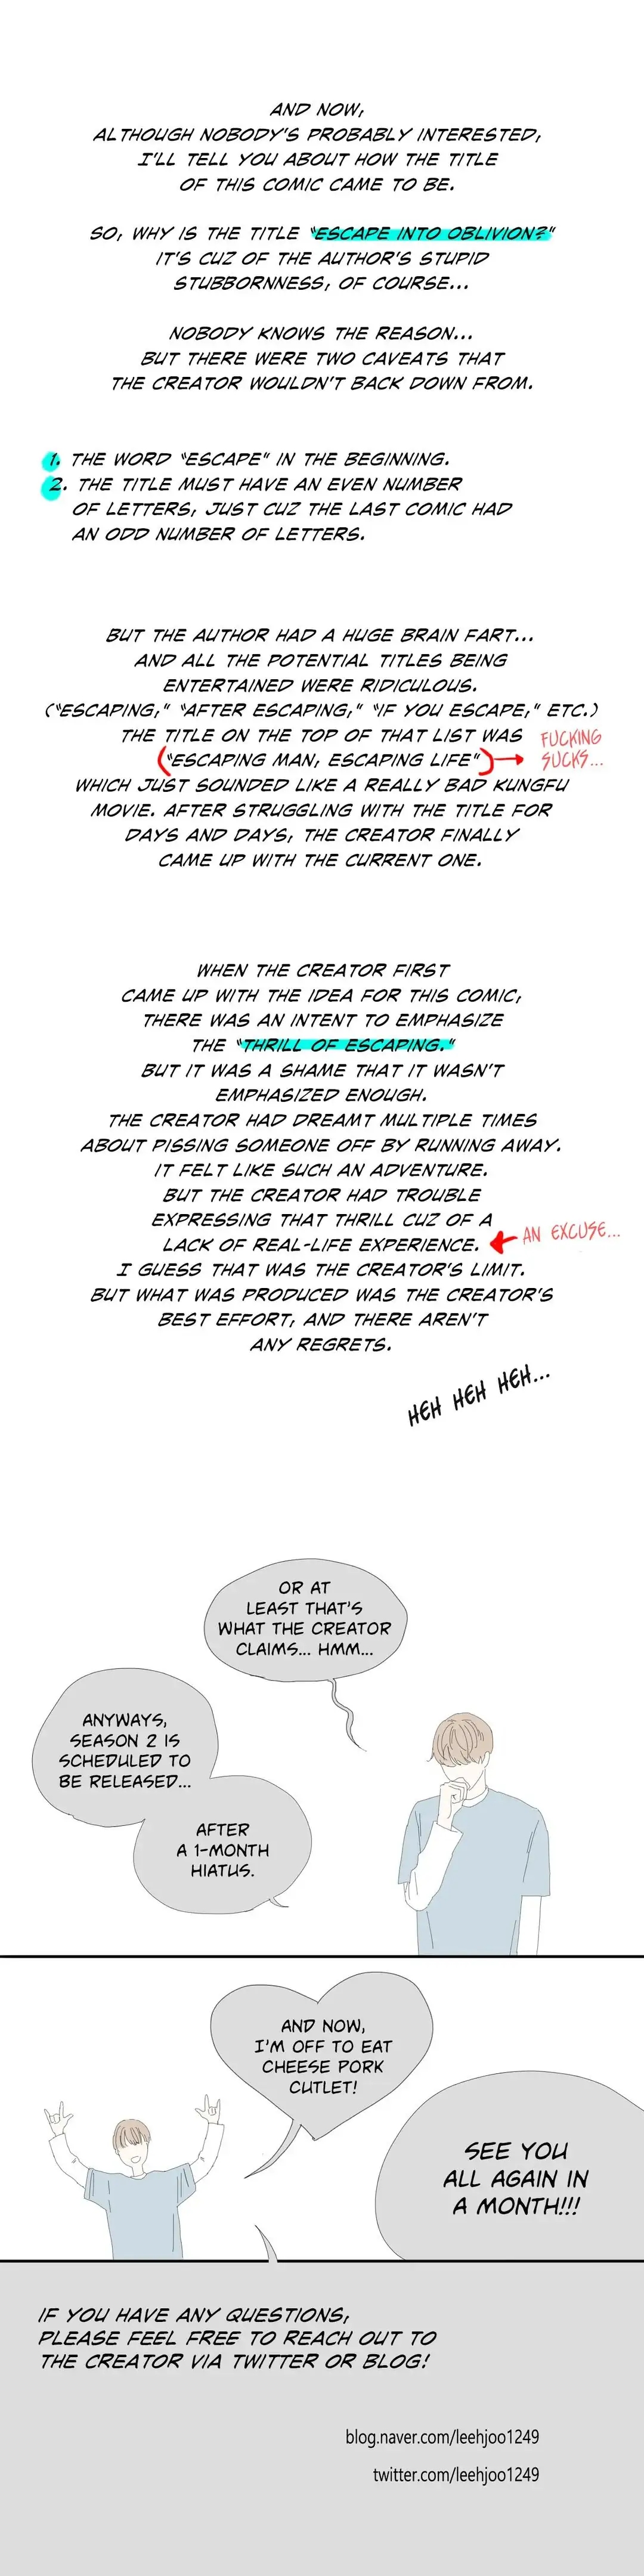 AND NOW,
ALTHOUGH NOBODY'S PROBABLY INTERESTED,
I'LL TELL YOU ABOUT HOW THE TITLE
OF THIS COMIC CAME TO BE.
SO, WHY IS THE TITLE "ESCAPE INTO OBLIVION?"
IT'S CUZ OF THE AUTHOR'S STUPID
STUBBORNNESS, OF COURSE...
NOBODY KNOWS THE REASON...
BUT THERE WERE TWO CAVEATS THAT
THE CREATOR WOULDN'T BACK DOWN FROM.
1. THE WORD "ESCAPE" IN THE BEGINNING.
2. THE TITLE MUST HAVE AN EVEN NUMBER
OF LETTERS, JUST CUZ THE LAST COMIC HAD
AN ODD NUMBER OF LETTERS.
BUT THE AUTHOR HAD A HUGE BRAIN FART...
AND ALL THE POTENTIAL TITLES BEING
ENTERTAINED WERE RIDICULOUS.
("ESCAPING," "AFTER ESCAPING," "IF YOU ESCAPE," ETC.)
THE TITLE ON THE TOP OF THAT LIST WAS
("ESCAPING MAN, ESCAPING LIFE")
FUCKING
SUCKS...
WHICH JUST SOUNDED LIKE A REALLY BAD KUNGFU
MOVIE. AFTER STRUGGLING WITH THE TITLE FOR
DAYS AND DAYS, THE CREATOR FINALLY
CAME UP WITH THE CURRENT ONE.
WHEN THE CREATOR FIRST
CAME UP WITH THE IDEA FOR THIS COMIC,
THERE WAS AN INTENT TO EMPHASIZE
THE "THRILL OF ESCAPING."
BUT IT WAS A SHAME THAT IT WASN'T
EMPHASIZED ENOUGH.
THE CREATOR HAD DREAMT MULTIPLE TIMES
ABOUT PISSING SOMEONE OFF BY RUNNING AWAY.
IT FELT LIKE SUCH AN ADVENTURE.
BUT THE CREATOR HAD TROUBLE
EXPRESSING THAT THRILL CUZ OF A
LACK OF REAL-LIFE EXPERIENCE.
AN EXCUSE...
I GUESS THAT WAS THE CREATOR'S LIMIT.
BUT WHAT WAS PRODUCED WAS THE CREATOR'S
BEST EFFORT, AND THERE AREN'T
ANY REGRETS.
HEH HEH HEH...
OR AT
LEAST THAT'S
WHAT THE CREATOR
CLAIMS... HMM...
ANYWAYS,
SEASON 2 IS
SCHEDULED TO
BE RELEASED...
AFTER
A 1-MONTH
HIATUS.
AND NOW,
I'M OFF TO EAT
CHEESE PORK
CUTLET!
SEE YOU
ALL AGAIN IN
A MONTH!!!
IF YOU HAVE ANY QUESTIONS,
PLEASE FEEL FREE TO REACH OUT TO
THE CREATOR VIA TWITTER OR BLOG!
blog.naver.com/leehjoo1249
twitter.com/leehjoo1249